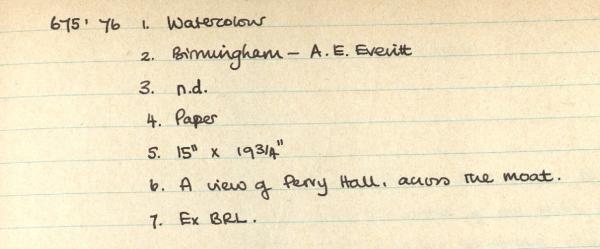 675'76 1. Watercolour
2. Birmingham - A.E. Everitt
3. n.d.
4. Paper
5. 15" x 19 3/4"
6. A view of Perry Hall, across the moat.
7. Ex BRL.